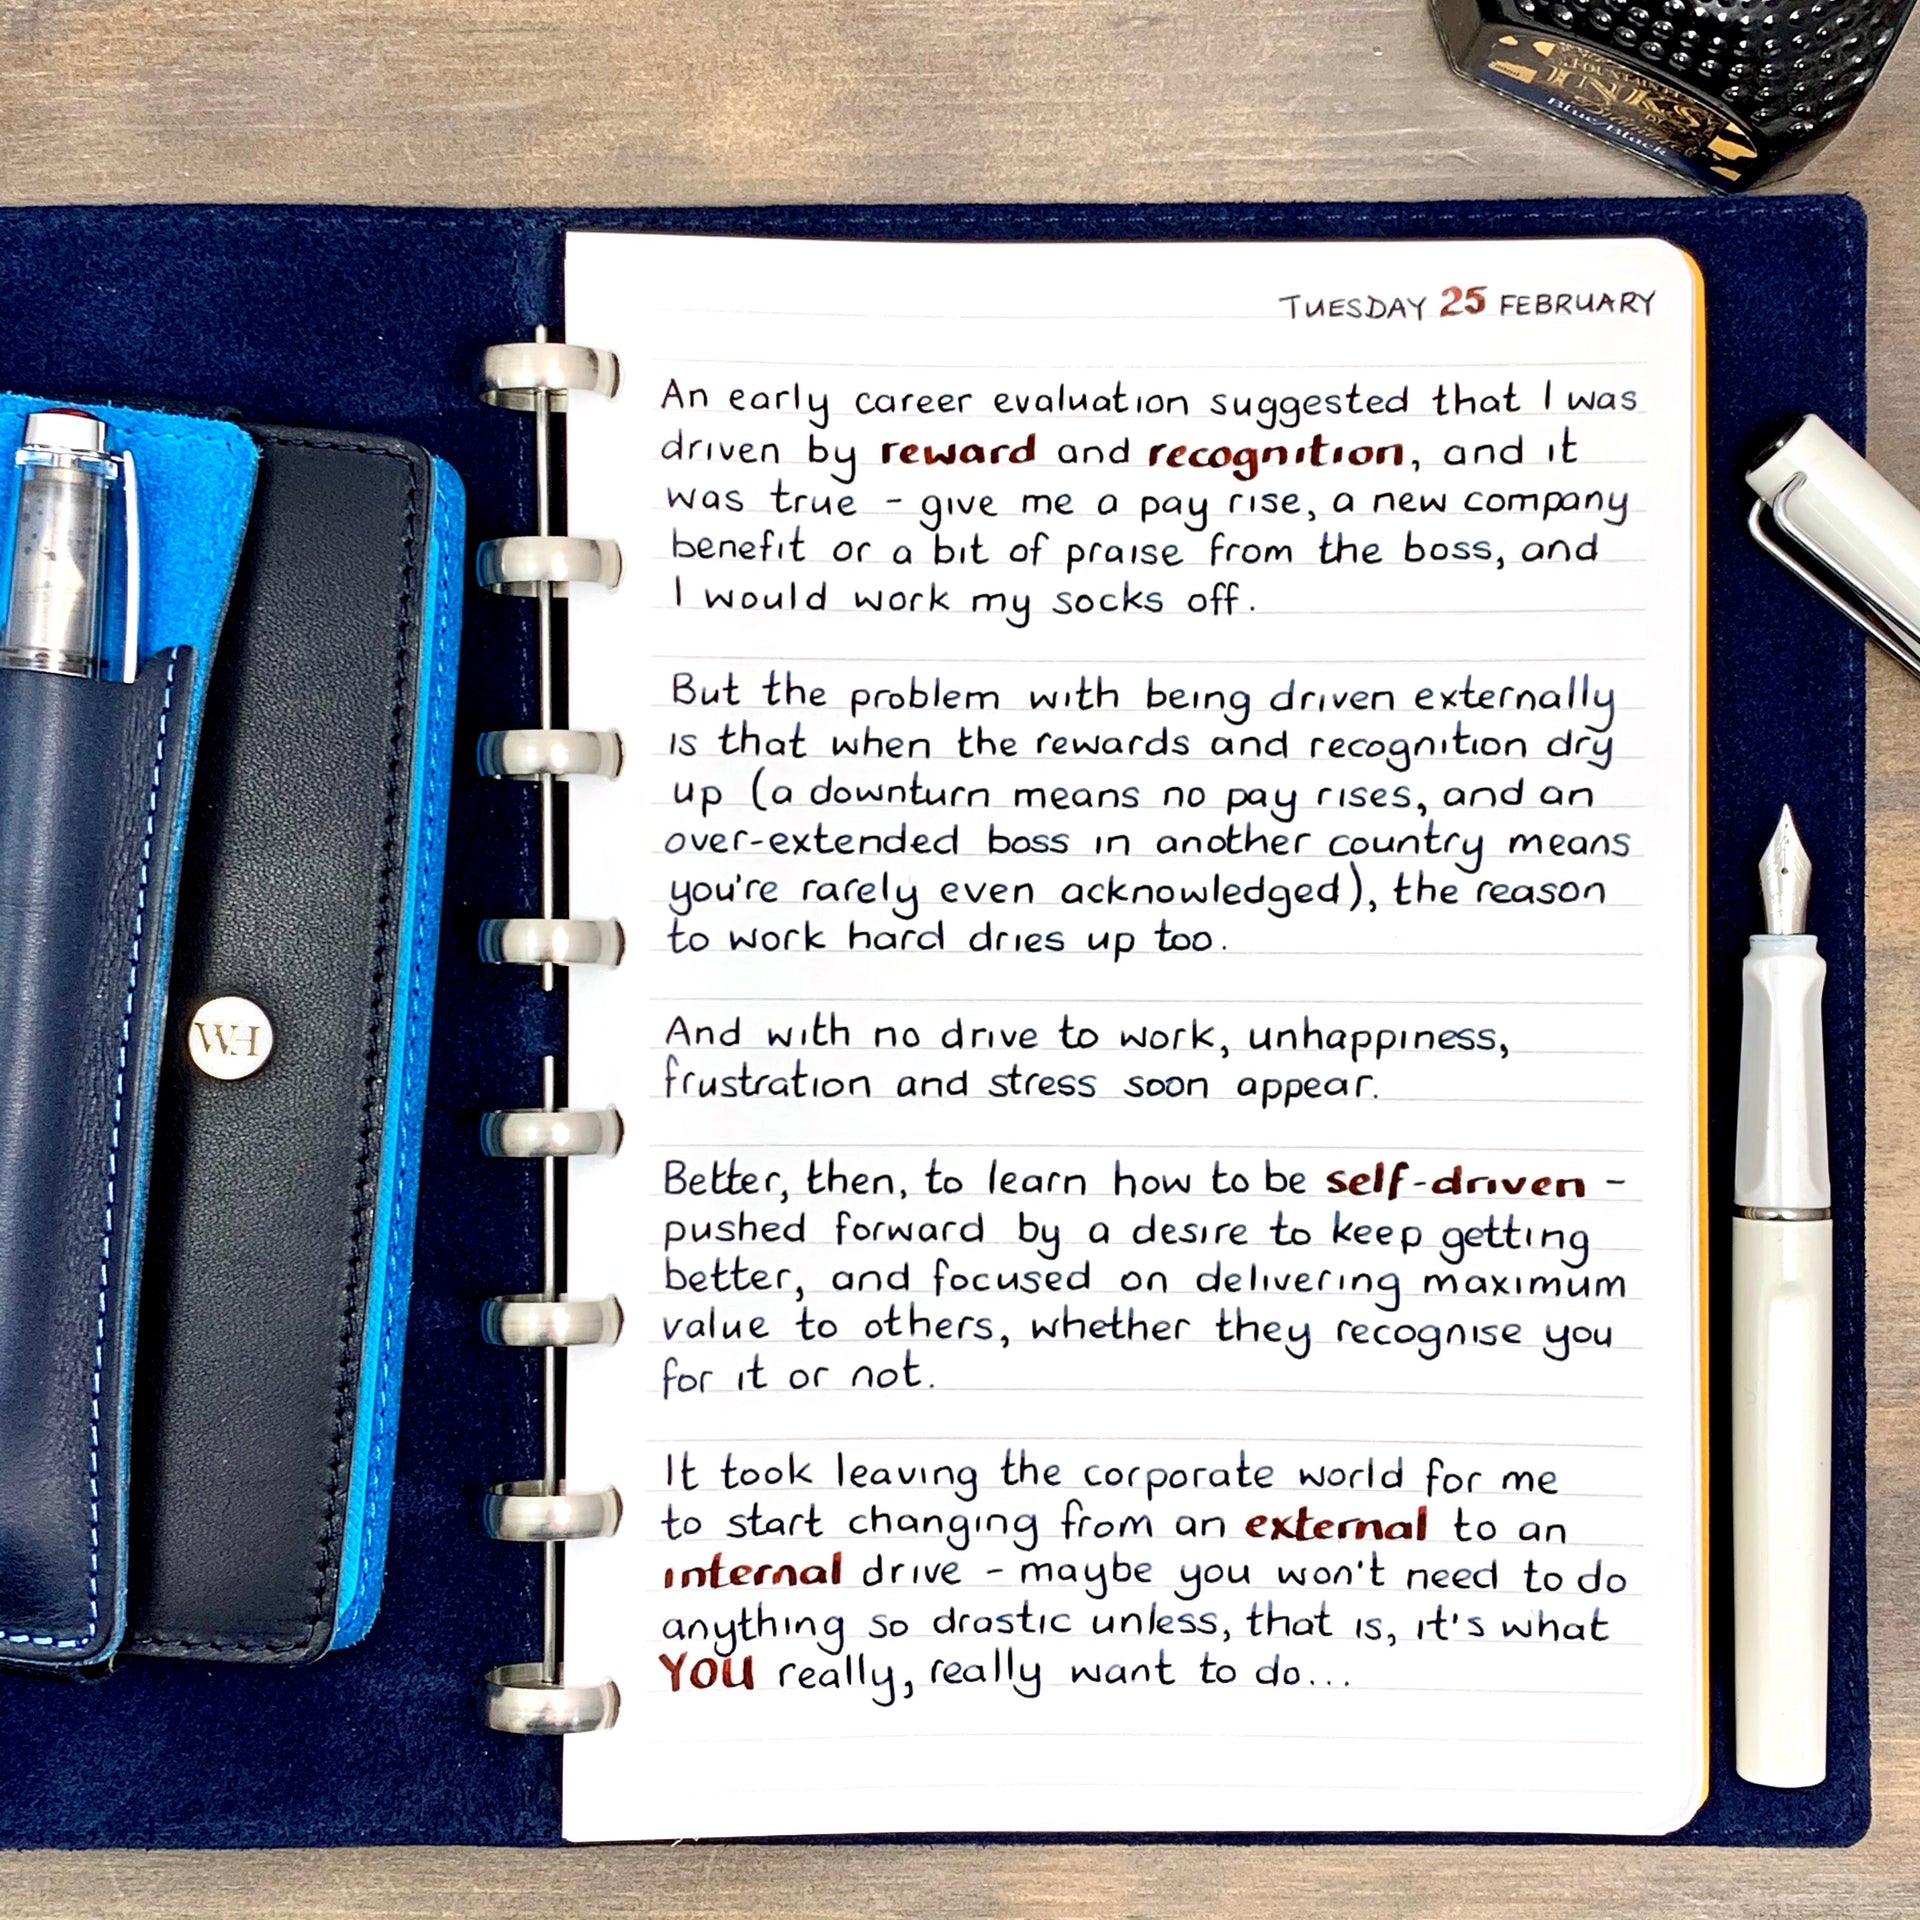 FOUNTAIN
INKS
Diamine
Blue/Black
TUESDAY 25 FEBRUARY
An early career evaluation suggested that I was
driven by reward and recognition, and it
was true - give me a pay rise, a new company
benefit or a bit of praise from the boss, and
I would work my socks off.
But the problem with being driven externally
is that when the rewards and recognition dry
up (a downturn means no pay rises, and an
over-extended boss in another country means
you're rarely even acknowledged), the reason
to work hard dries up too.
And with no drive to work, unhappiness,
frustration and stress soon appear.
Better, then, to learn how to be self-driven -
pushed forward by a desire to keep getting
better, and focused on delivering maximum
value to others, whether they recognise you
for it or not.
It took leaving the corporate world for me
to start changing from an external to an
internal drive - maybe you won't need to do
anything so drastic unless, that is, it's what
YOU really, really want to do...
WH